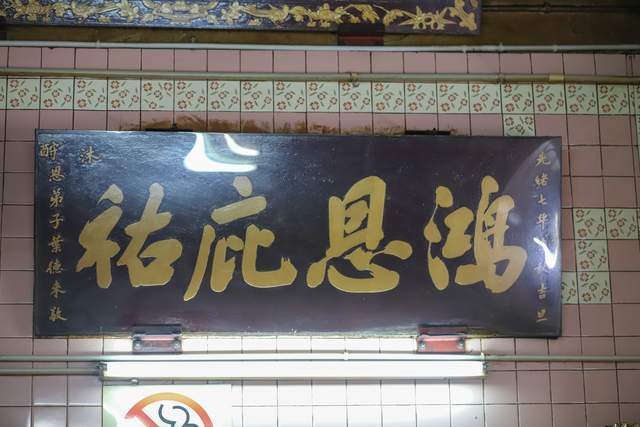 光緒七年
吉旦
鴻恩庇祐
沐
酧恩弟子葉德來敬